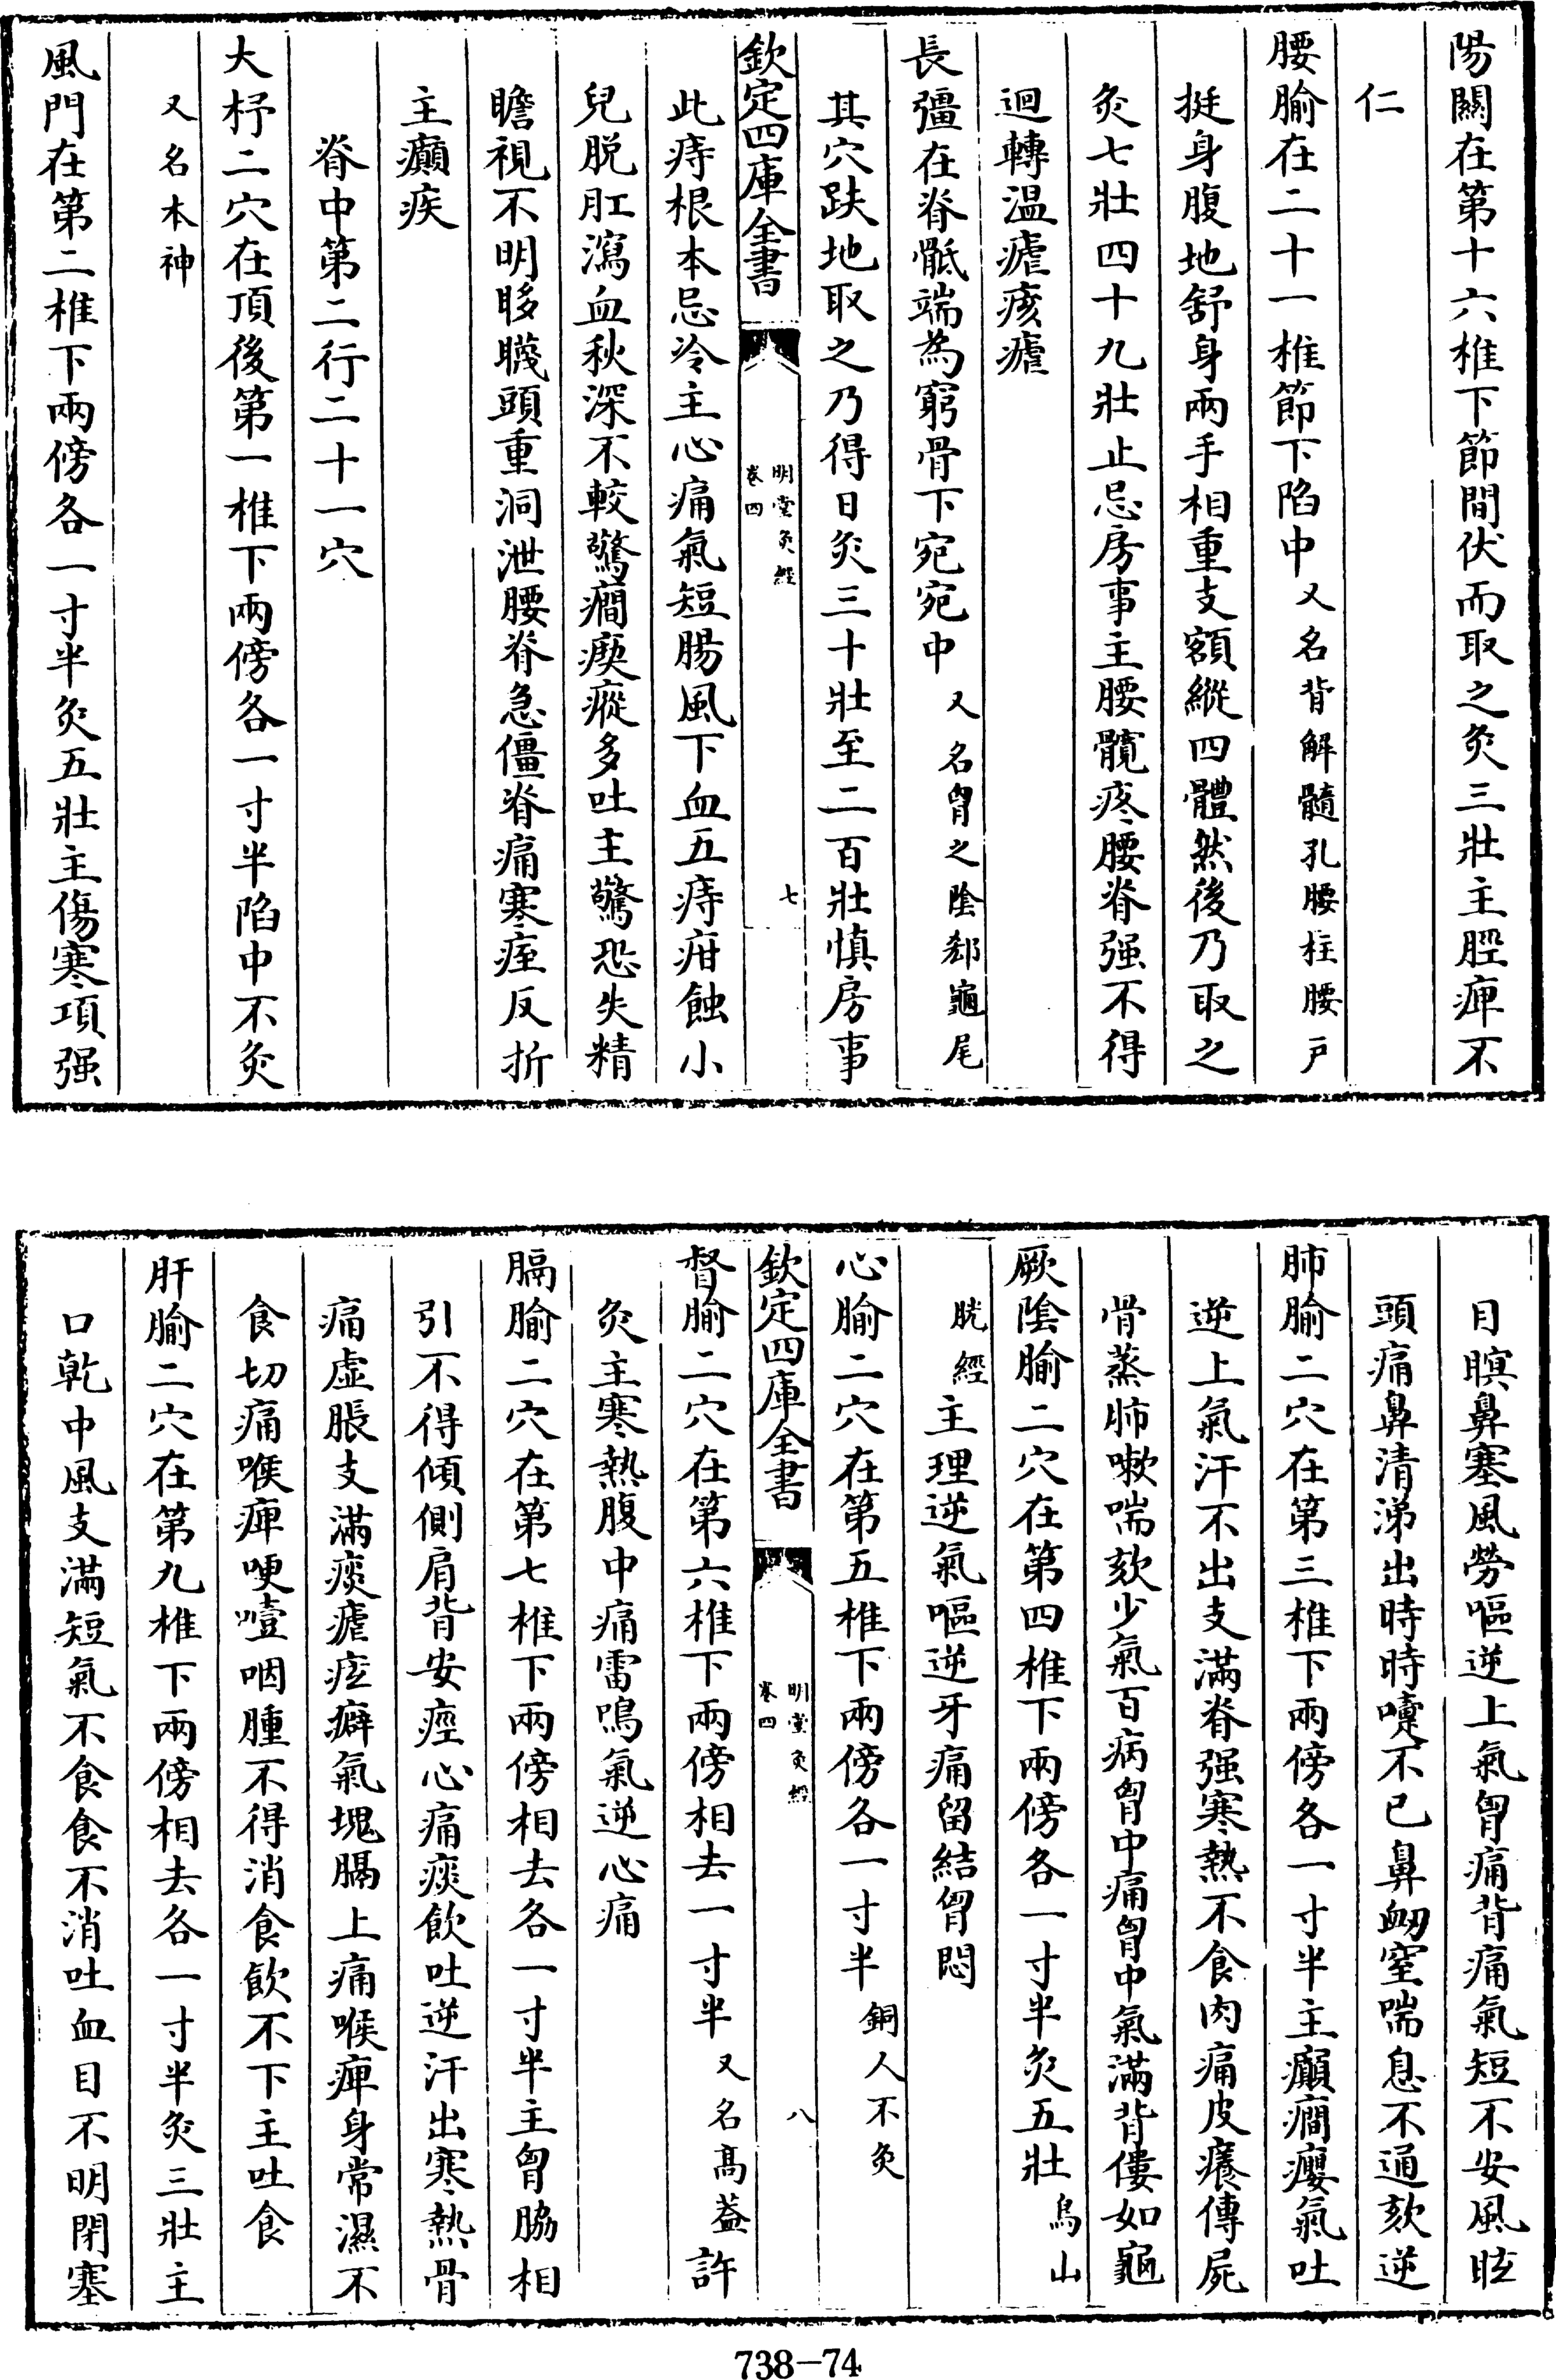 陽關在第十六椎下節間伏而取之灸三壯主脛痺不
仁
腰腧在二十一椎節下陷中又名背解髓孔腰柱腰戶
挺身腹地舒身兩手相重支額縱四體然後乃取之
灸七壯四十九壯止忌房事主腰髖疼腰脊强不得
迴轉温瘧痎瘧
長彊在脊骶端為窮骨下宛宛中又名胷之陰郄龜尾
其穴趺地取之乃得日灸三十壯至二百壯慎房事
欽定四庫全書
明堂灸經
卷四
七
此痔根本忌冷主心痛氣短腸風下血五痔疳蝕小
兒脱肛瀉血秋深不較驚癇瘈瘲多吐主驚恐失精
瞻視不明眵䁾頭重洞泄腰脊急僵脊痛寒痓反折
主癲疾
脊中第二行二十一穴
大杼二穴在頂後第一椎下兩傍各一寸半陷中不灸
又名本神
風門在第二椎下兩傍各一寸半灸五壯主傷寒項强
目瞑鼻塞風勞嘔逆上氣胷痛背痛氣短不安風眩
頭痛鼻清涕出時時嚏不已鼻衂窒喘息不通欬逆
肺腧二穴在第三椎下兩傍各一寸半主癲癇癭氣吐
逆上氣汗不出支滿脊强寒熱不食肉痛皮癢傳屍
骨蒸肺嗽喘欬少氣百病胷中痛胷中氣滿背僂如龜
厥陰腧二穴在第四椎下兩傍各一寸半灸五壯烏山
胱經主理逆氣嘔逆牙痛留結胷悶
心腧二穴在第五椎下兩傍各一寸半銅人不灸
欽定四庫全書
明堂灸經
卷四
八
督腧二穴在第六椎下兩傍相去一寸半又名髙葢許
灸主寒熱腹中痛雷鳴氣逆心痛
膈腧二穴在第七椎下兩傍相去各一寸半主胷脇相
引不得傾側肩背安痙心痛痰飲吐逆汗出寒熱骨
痛虚脹支滿痰瘧痃癖氣塊膈上痛喉痺身常濕不
食切痛喉痺哽噎咽腫不得消食飲不下主吐食
肝腧二穴在第九椎下兩傍相去各一寸半灸三壯主
口乾中風支滿短氣不食食不消吐血目不明閉塞
738-74